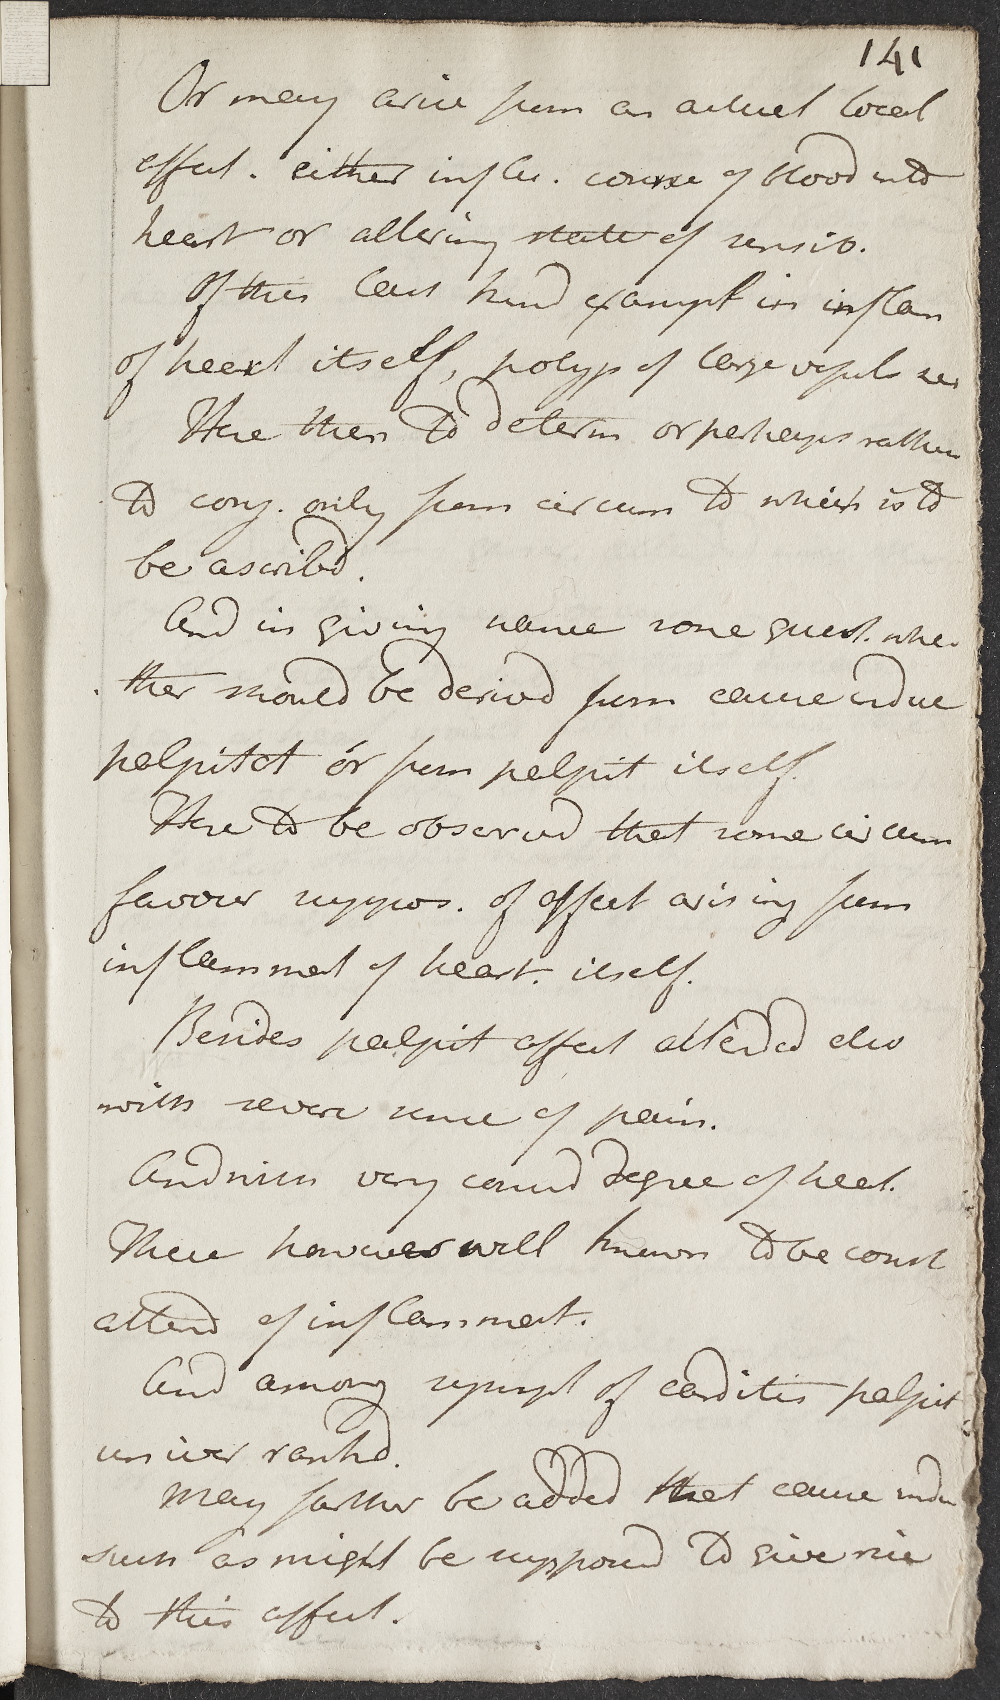 141
Or may arise from an actuel local
affect. either influ. course of blood into
heart or altering state of sensib.
Of this last kind exampl in inflam
of heart itself, polyp of large vessels
Here then to determ or perhaps rather
to conj. only from circum to which is to
be ascribd.
And in giving name some quest. whe
ther should be derived from cause induc
palpitat or from palpit itself.
Here to be observed that some circum
favour suppos. of affect arising from
inflammat of heart. itself.
Besides palpit affect attended also
with severe sense of pain.
And with very consid degree of heat.
These however well known to be const
attend of inflammat.
And among sympt of carditis palpit
univer rankd.
May farther be added that cause induc
such as might be supposed to give rise
to this affect.